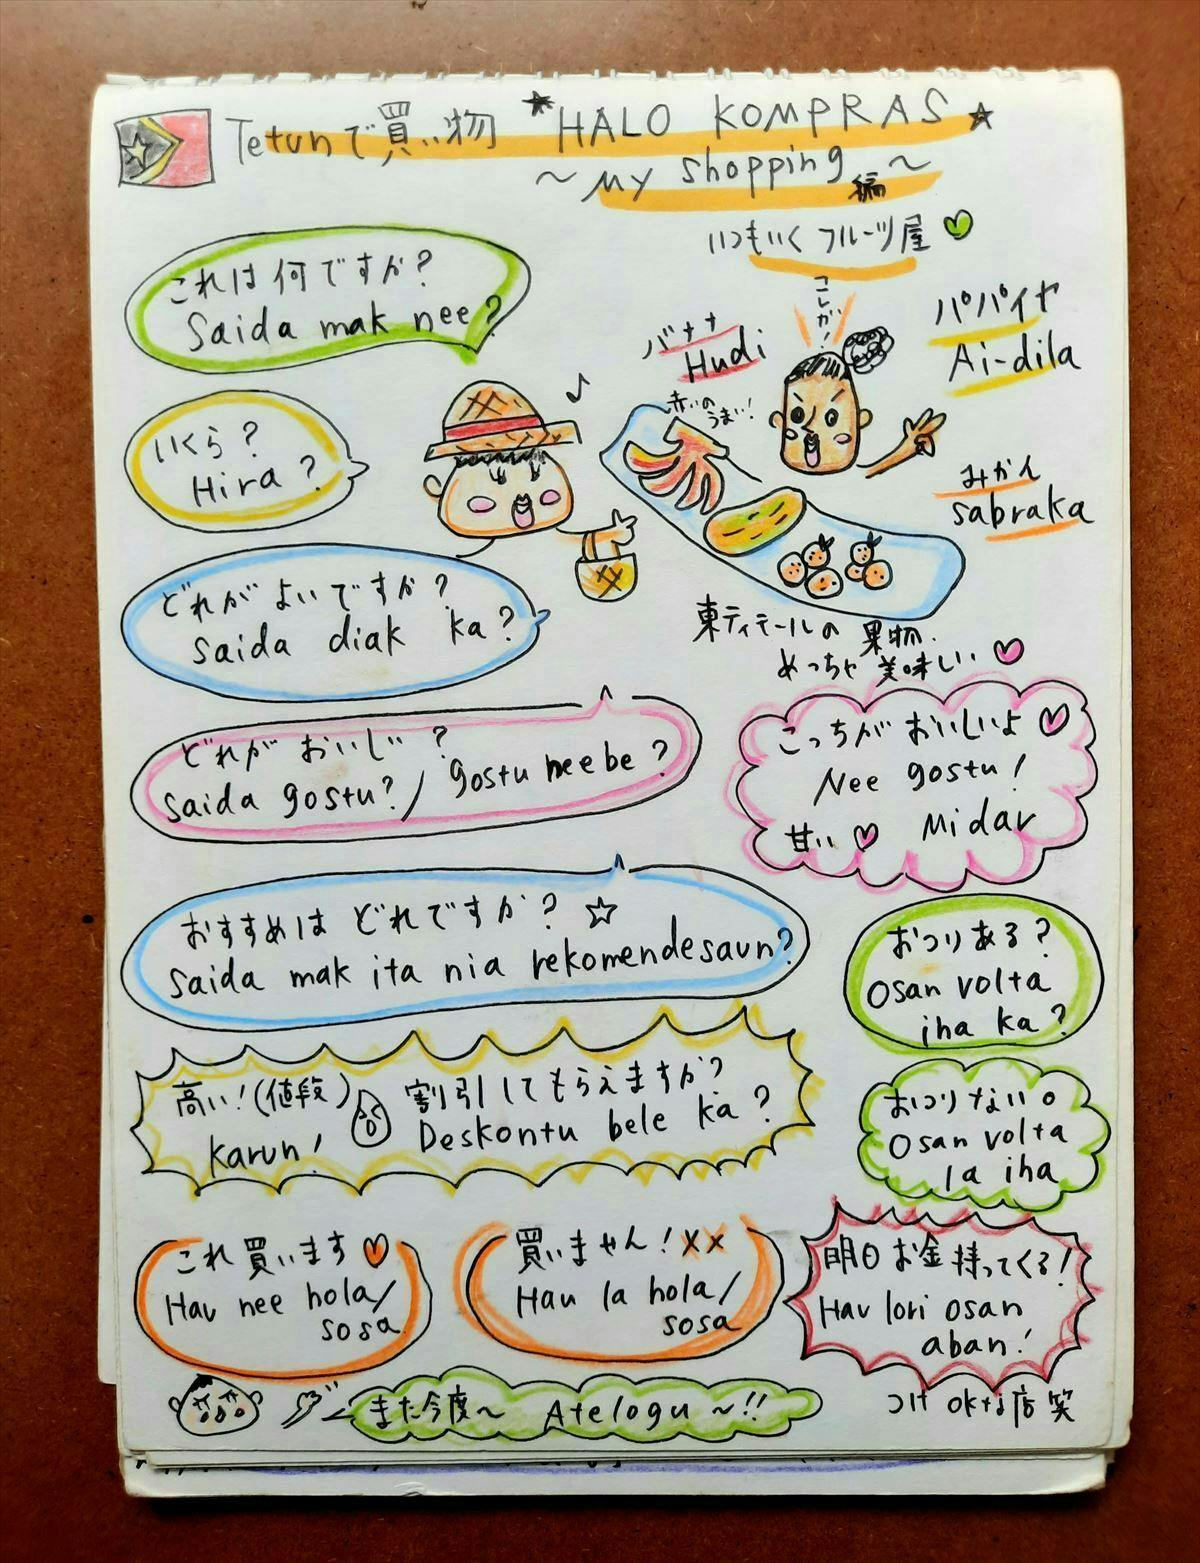 Tetunで買い物 ★HALO KOMPRAS★
～My shopping編～
いつもいくフルーツ屋
これは何ですか?
Saida mak nee?
コレが!
バナナ
Hudi
パパイヤ
Ai-dila
赤いの
うまい!
いくら?
Hira?
みかん
sabraka
どれがよいですか?
Saida diak ka?
東ティモールの果物
めっちゃ美味しい
どれがおいしい?
saida gostu?/gostu neebe?
こっちがおいしいよ
Nee gostu!
甘い Midar
おすすめはどれですか?☆
Saida mak ita nia rekomendesaun?
おつりある?
Osan volta
iha ka?
高い!(値段)
Karun!
割引してもらえますか?
Deskontu bele ka?
おつりない。
Osan volta
la iha
これ買います
Hau nee hola/
sosa
買いません!××
Hau la hola/
sosa
明日お金持ってくる!
Hau lori osan
aban!
また今度～ Atelogu～!!
つけokな店笑